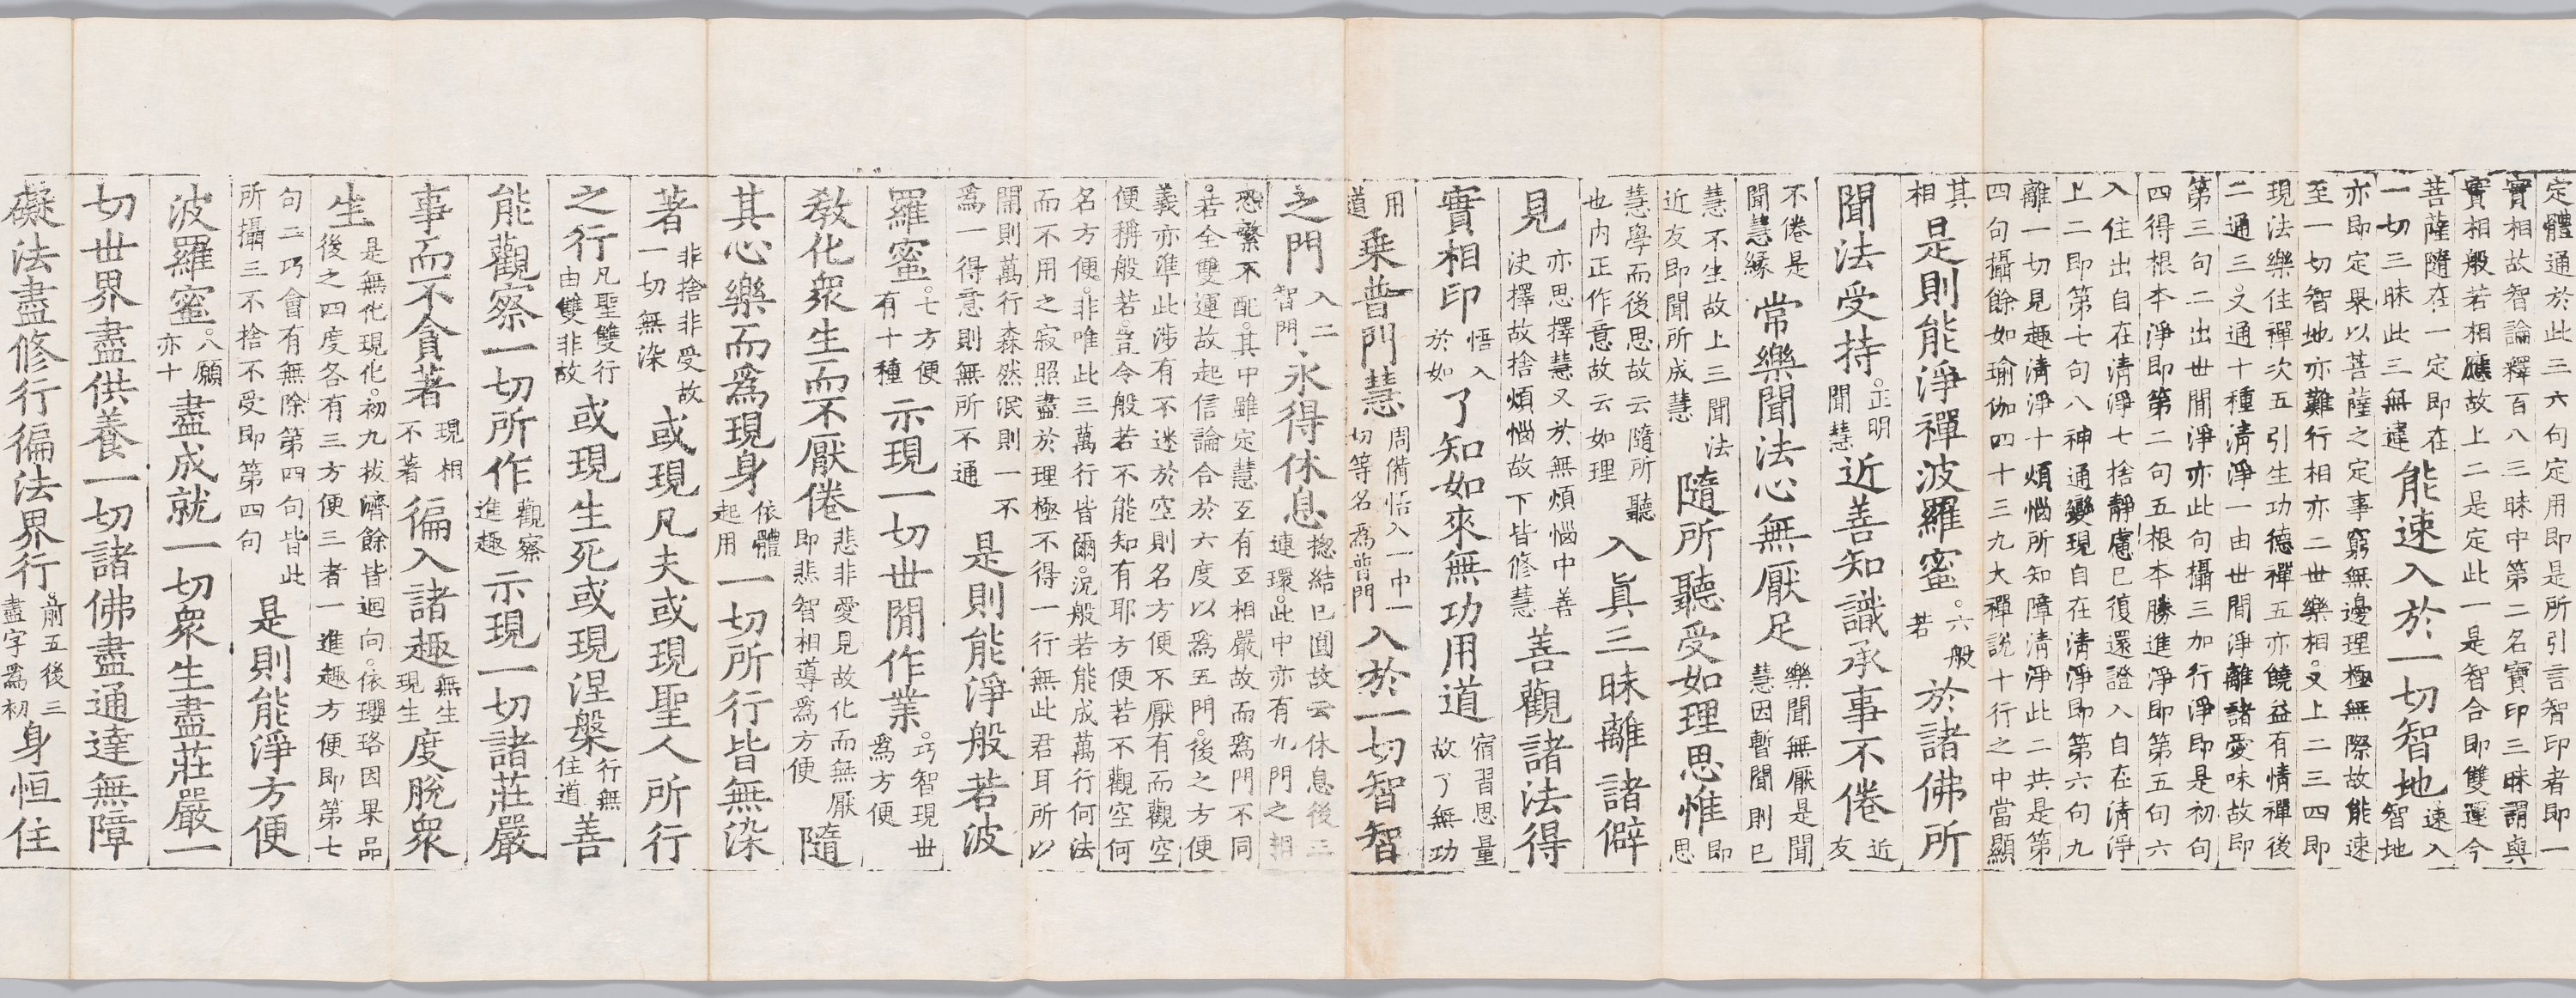 定體通於此三六句定用即是所引言智印者即一
實相故智論釋百八三昧中第二名寶印三昧謂與
實相般若相應故上二是定此一是智合即雙運今
菩薩隨在一定即在一切三昧此三無違能速入於一切智地速入智地
亦即定果以菩薩之定事窮無邊理極無際故能速
至一切智地亦難行相亦二世樂相。又上二三四即
現法樂住禪次五引生功德禪五亦饒益有情禪後
二通三。又通十種清淨一由世間淨離諸愛味故即
第三句二出世間淨亦此句攝三加行淨即是初句
四得根本淨即第二句五根本勝進淨即第五句六
入住出自在清淨七捨靜慮已復還證入自在清淨
上二即第七句八神通變現自在清淨即第六句九
離一切見趣清淨十煩惱所知障清淨此二共是第
四句攝餘如瑜伽四十三九大禪說十行之中當顯
其相是則能淨禪波羅蜜。六般若於諸佛所
聞法受持。正明聞慧近善知識承事不倦近友
不倦是聞慧緣常樂聞法心無厭足樂聞無厭是聞慧因暫聞則已
慧不生故上三聞法近友即聞所成慧隨所聽受如理思惟即思
慧學而後思故云隨所聽也內正作意故云如理入眞三昧離諸僻
見亦思擇慧又於無煩惱中善決擇故捨煩惱故下皆修慧善觀諸法得
實相印悟入於如了知如來無功用道宿習思量故了無功
用道乘普門慧周備悟入一中一切等名爲普門入於一切智智
之門入二智門永得休息揔結已圓故云休息後三連環。此中亦有九門之相
恐繁不配。其中雖定慧互有互相嚴故而爲門不同
。若全雙運故起信論合於六度以爲五門。後之方便
義亦準此涉有不迷於空則名方便不厭有而觀空
便稱般若。豈令般若不能知有耶方便若不觀空何
名方便。非唯此三萬行皆爾。況般若能成萬行何法
而不用之寂照盡於理極不得一行無此君耳所以
開則萬行森然泯則一不爲一得意則無所不通是則能淨般若波
羅蜜。七方便有十種示現一切世間作業。巧智現世爲方便
敎化衆生而不厭倦悲非愛見故化而無厭即悲智相導爲方便隨
其心樂而爲現身依體起用一切所行皆無染
著非捨非受故一切無染或現凡夫或現聖人所行
之行凡聖雙行由雙非故或現生死或現涅槃行無住道善
能觀察一切所作觀察進趣示現一切諸莊嚴
事而不貪著現相不著徧入諸趣無生現生度脫衆
生是無化現化。初九拔濟餘皆迴向。依瓔珞因果品後之四度各有三方便三者一進趣方便即第七
句二巧會有無除第四句皆此所攝三不捨不受即第四句是則能淨方便
波羅蜜。八願亦十盡成就一切衆生盡莊嚴一
切世界盡供養一切諸佛盡通達無障
礙法盡修行徧法界行。前五後三盡字爲初身恒住